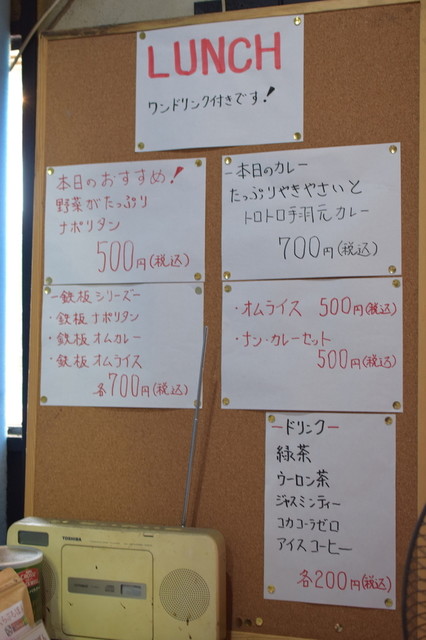 LUNCH
ワンドリンク付きです!
本日のおすすめ!
野菜がたっぷり
ナポリタン
500円(税込)
-本日のカレー
たっぷりやきやさいと
トロトロ手羽元カレー
700円(税込)
-鉄板シリーズー
・鉄板ナポリタン
・鉄板オムカレー
・鉄板オムライス
各700円(税込)
・オムライス 500円(税込)
・ナン・カレーセット
500円(税込)
-ドリンク-
緑茶
ウーロン茶
ジャスミンティー
コカコーラゼロ
アイスコーヒー
各200円(税込)
TOSHIBA